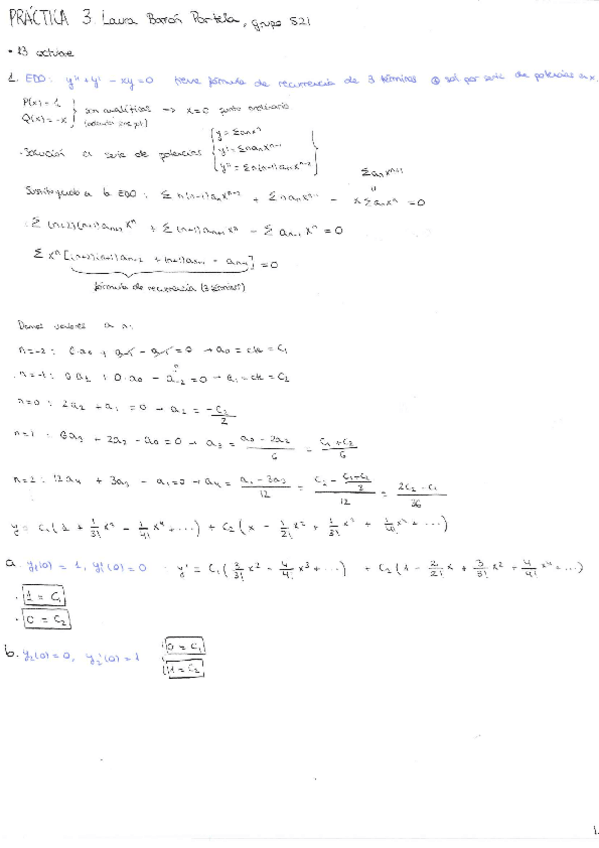 PRÁCTICA 3 Laura Barón Portela, grupo 521
• 13 octubre
1. EDO: y'' + y' - xy = 0 tiene fórmula de recurrencia de 3 términos sol por serie de potencias en x.
P(x) = 1
Q(x) = -x } son analíticas → x=0 punto ordinario
• Solución en serie de potencias { y = Σ aₙxⁿ
y' = Σ n aₙ xⁿ⁻¹
y'' = Σ n(n-1) aₙ xⁿ⁻² }
Σ aₙ xⁿ⁺¹
Sustituyendo en la EDO: Σ n(n-1) aₙ xⁿ⁻² + Σ n aₙ xⁿ⁻¹ - x Σ aₙ xⁿ = 0
Σ (n+2)(n+1) aₙ₊₂ xⁿ + Σ (n+1) aₙ₊₁ xⁿ - Σ aₙ₋₁ xⁿ = 0
Σ xⁿ [(n+2)(n+1) aₙ₊₂ + (n+1) aₙ₊₁ - aₙ₋₁] = 0
fórmula de recurrencia (3 términos)
Damos valores a n:
n=-2: 0·a₀ + a₋₁ - a₋₃ = 0 → a₀ = cte = C₁
n=-1: 0·a₁ + 0·a₀ - a₋₂ = 0 → a₁ = cte = C₂
n=0: 2a₂ + a₁ = 0 → a₂ = -C₂/2
n=1: 6a₃ + 2a₂ - a₀ = 0 → a₃ = (a₀ - 2a₂)/6 = (C₁ + C₂)/6
n=2: 12a₄ + 3a₃ - a₁ = 0 → a₄ = (a₁ - 3a₃)/12
y = C₁(1 + 1/3! x³ - 1/4! x⁴ + ...) + C₂(x - 1/2! x² + 1/3! x³ + ...)
a. y₁(0) = 1, y₁'(0) = 0 y' = C₁(3/3! x² - 4/4! x³ + ...) + C₂(1 - 2/2! x + 3/3! x² + ...)
• 1 = C₁
• 0 = C₂
b. y₂(0) = 0, y₂'(0) = 1 0 = C₁
1 = C₂
1.